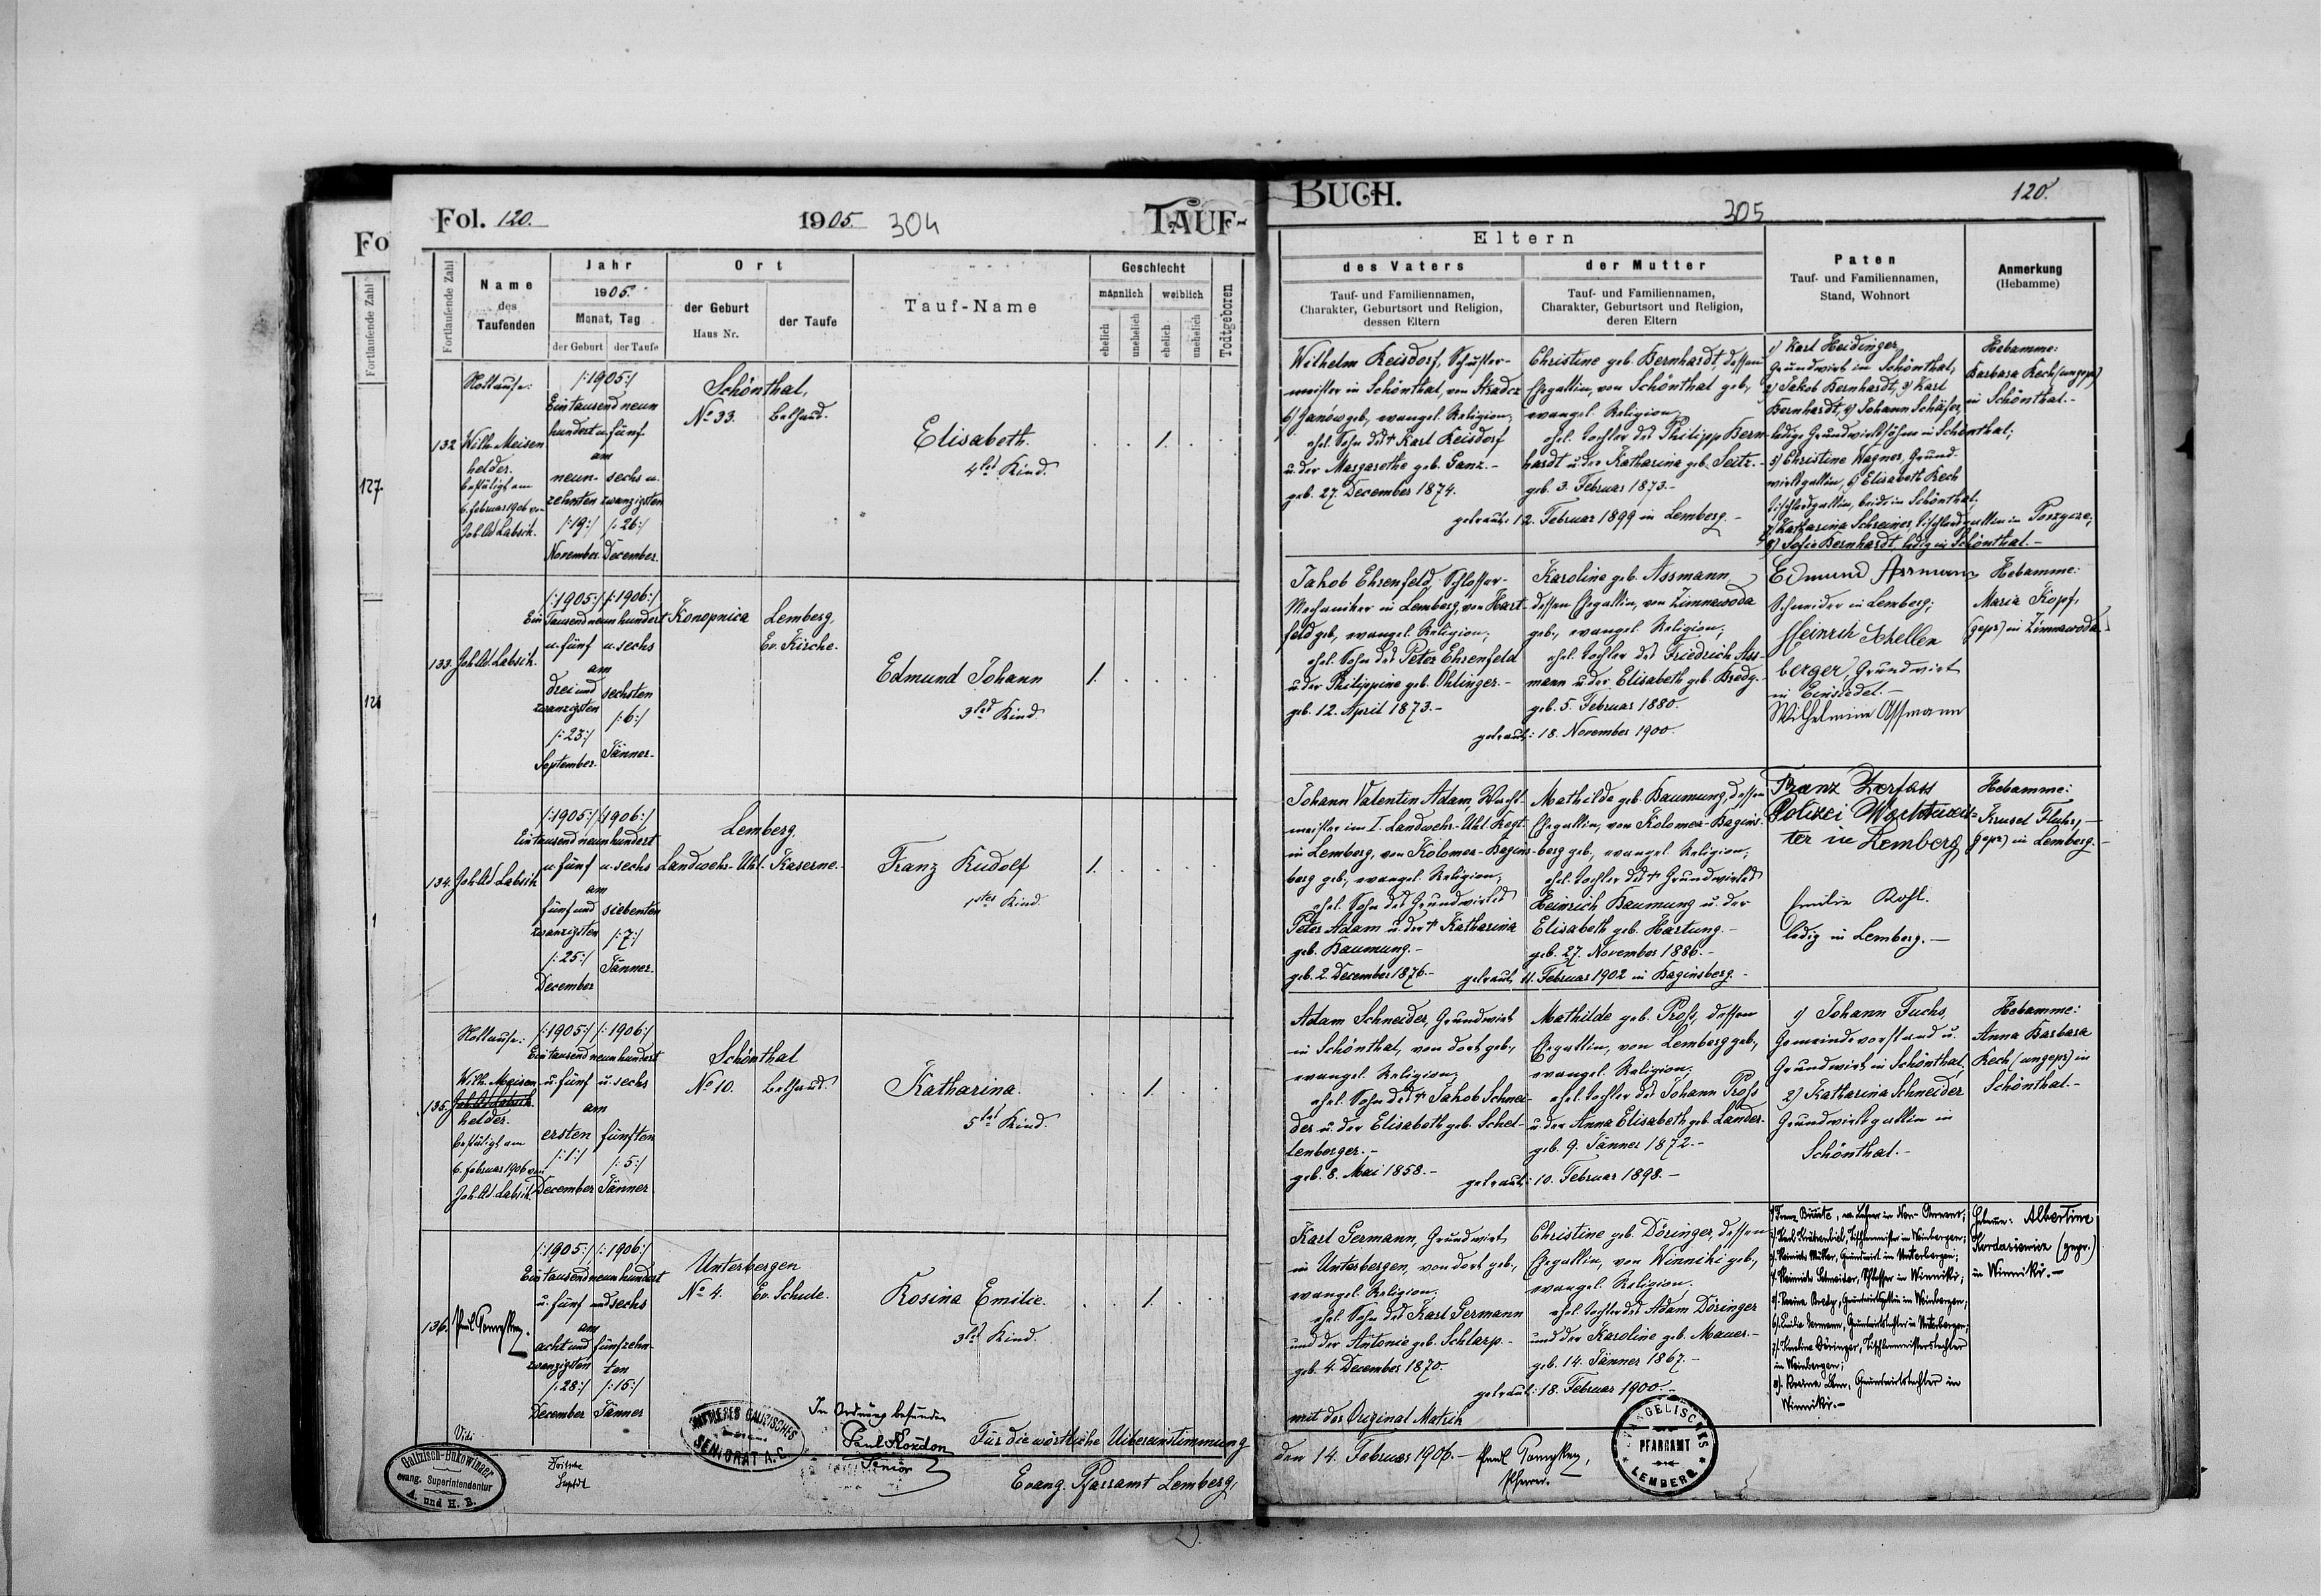 Fol. 120.
1905.
304
TAUF-
Fortlaufende Zahl
Name
des
Taufenden
Jahr
1905.
Monat, Tag
der Geburt
der Taufe
Ort
der Geburt
Haus Nr.
der Taufe
Tauf-Name
Geschlecht
männlich
weiblich
ehelich
unehelich
ehelich
unehelich
Todtgeboren
Fo
Fortlaufende Zahl
127
132
Nottaufe:
Wilh. Meisen
helder.
bestätigt am
6. Februar 1906 von
Joh. Ad. Labsik.
/:1905:/
Ein tausend neun
hundert u. fünf
am
neun-
zehnten
/:19:/
November
sechs u.
zwanzigsten
/:26:/
December
Schönthal,
No 33.
Bethaus.
Elisabeth.
4tes Kind.
1.
133.
Joh. Ad. Labsik.
/:1905:/ /:1906:/
Ein Tausend neun hundert
u. fünf u. sechs
am
drei und
zwanzigsten
/:23:/
September.
sechsten
/:6:/
Jänner.
Konopnica
Lemberg,
Ev. Kirche.
Edmund Johann
3tes Kind.
1.
134.
Joh. Ad. Labsik
/:1905:/ /:1906:/
Ein tausend neun hundert
u. fünf u. sechs
am
fünf und
zwanzigsten
/:25:/
December
siebenten
/:7:/
Jänner.
Lemberg.
Landwehr-Uhl. Kaserne.
Franz Rudolf
1stes Kind.
1.
135.
Nottaufe:
Wilh. Meisen
Joh. Ad. Labsik
helder.
bestätigt am
6. Februar 1906 von
Joh. Ad. Labsik.
/:1905:/ /:1906:/
Ein tausend neun hundert
u. fünf u. sechs
am
ersten
/:1:/
December
fünften
/:5:/
Jänner
Schönthal
No 10.
Bethaus.
Katharina.
5tes Kind.
1.
136.
/:1905:/ /:1906:/
Ein tausend neun hundert
u. fünf und sechs
am
acht und
zwanzigsten
/:28:/
December
fünfzehn-
ten
/:15:/
Jänner
Unterbergen
No 4.
Ev. Schule.
Rosina Emilie.
3tes Kind.
1.
Vidi
Galizisch-Bukowinaer
evang. Superintendentur
A. und H. B.
MITTLERES GALIZISCHES
SENIORAT A. C.
In Ordnung befunden
Paul Kozdon
Senior
Für die wörtliche Uibereinstimmung
Evang. Pfarramt Lemberg,
BUCH.
305
120.
Eltern
des Vaters
Tauf- und Familiennamen,
Charakter, Geburtsort und Religion,
dessen Eltern
der Mutter
Tauf- und Familiennamen,
Charakter, Geburtsort und Religion,
deren Eltern
Paten
Tauf- und Familiennamen,
Stand, Wohnort
Anmerkung
(Hebamme)
Wilhelm Reisdorf, Schuster-
meister in Schönthal, von Stradcz
b/ Janów geb., evangel. Religion,
ehel. Sohn des + Karl Reisdorf
u. der Margarethe geb. Ganz.-
geb. 27. December 1874.
Christine geb. Bernhardt, dessen
Ehegattin, von Schönthal geb.,
evangel. Religion,
ehel. Tochter des Philipp Bern-
hardt u. der Katharina geb. Seitz.-
geb. 3. Februar 1873.-
getraut: 12. Februar 1899 in Lemberg.-
1) Karl Heidinger,
Grundwirt in Schönthal,
2) Jakob Bernhardt, 3) Karl
Bernhardt, 4) Johann Schäfer,
ledige Grundwirtssöhne in Schönthal;
5) Christine Wagner, Grund-
wirtsgattin, 6) Elisabeth Rech
Tischlersgattin, beide in Schönthal,
7) Katharina Schreiner, Tischlersgattin in Porzycze,
8) Sofie Bernhardt, ledig in Schönthal.-
Hebamme:
Barbara Rech (ungepr.)
in Schönthal.-
Jakob Ehrenfeld, Schlosser-
Mechaniker in Lemberg, von Hart-
feld geb., evangel. Religion,
ehel. Sohn des Peter Ehrenfeld
u. der Philippine geb. Ohlinger.-
geb. 12. April 1873.-
Karoline geb. Assmann,
dessen Ehegattin, von Zimnawoda
geb., evangel. Religion,
ehel. Tochter des Friedrich Ass-
mann u. der Elisabeth geb. Bredy.-
geb. 5. Februar 1880.
getraut: 18. November 1900.
Edmund Assmann
Schneider in Lemberg;
Heinrich Schellen
berger, Grundwirt
in Einsiedel.-
Wilhelmine Assmann
Hebamme:
Maria Kopf,
(gepr.) in Zimnawoda.-
Johann Valentin Adam, Wacht-
meister im I. Landwehr-Uhl. Regt.
in Lemberg, von Kolomea-Bagins-
berg geb., evangel. Religion,
ehel. Sohn des Grundwirtes
Peter Adam u. der + Katharina
geb. Baumung.-
geb. 2. December 1876.-
Mathilde geb. Baumung, dessen
Ehegattin, von Kolomea-Bagins-
berg geb., evangel. Religion,
ehel. Tochter des + Grundwirtes
Heinrich Baumung u. der
Elisabeth geb. Hartung.-
geb. 27. November 1886.-
getraut, 11. Februar 1902 in Baginsberg.-
Franz Zerfass
Polizei Wachtmeis-
ter in Lemberg
Emilie Rohl.
ledig in Lemberg.-
Hebamme:
Krusel Fluhr,
(gepr.) in Lemberg.-
Adam Schneider, Grundwirt
in Schönthal, von dort geb.,
evangel. Religion,
ehel. Sohn des + Jakob Schnei-
der u. der Elisabeth geb. Schel-
lenberger.-
geb. 8. Mai 1858.-
Mathilde geb. Proß, dessen
Ehegattin, von Lemberg geb.,
evangel. Religion,
ehel. Tochter des Johann Proß
u. der Anna Elisabeth geb. Lander.
geb. 9. Jänner 1872.-
getraut: 10. Februar 1898.-
1) Johann Fuchs,
Gemeindevorstand u.
Grundwirt in Schönthal,
2) Katharina Schneider
Grundwirtsgattin in
Schönthal.-
Hebamme:
Anna Barbara
Rech (ungepr.) in
Schönthal.-
Karl Germann, Grundwirt
in Unterbergen, von dort geb.,
evangel. Religion,
ehel. Sohn des Karl Germann
und der Antonie geb. Schlarp.-
geb. 4. December 1870.
Christine geb. Döringer, dessen
Ehegattin, von Winniki geb.,
evangel. Religion,
ehel. Tochter des Adam Döringer
und der Karoline geb. Mauer.-
geb. 14. Jänner 1867.-
getraut: 18. Februar 1900.-
Tischlermeister in Weinbergen;
3) Heinrich Müller, Grundwirt in Unterbergen;
4) Heinrich Schneider, Schlosser in Winniki;
Grundwirtsgattin in Weinbergen;
6) Emilie Germann, Grundwirtstochter in Unterbergen;
7) Karoline Döringer, Tischlermeisterstochter
in Weinbergen;
Grundwirtstochter in
Winniki.-
Hebamme: Albertine
Kordasiewicz (gepr.)
in Winniki.-
mit der Original Matrik
den 14. Februar 1906.-
Pfarrer.
EVANGELISCHES
PFARRAMT
LEMBERG